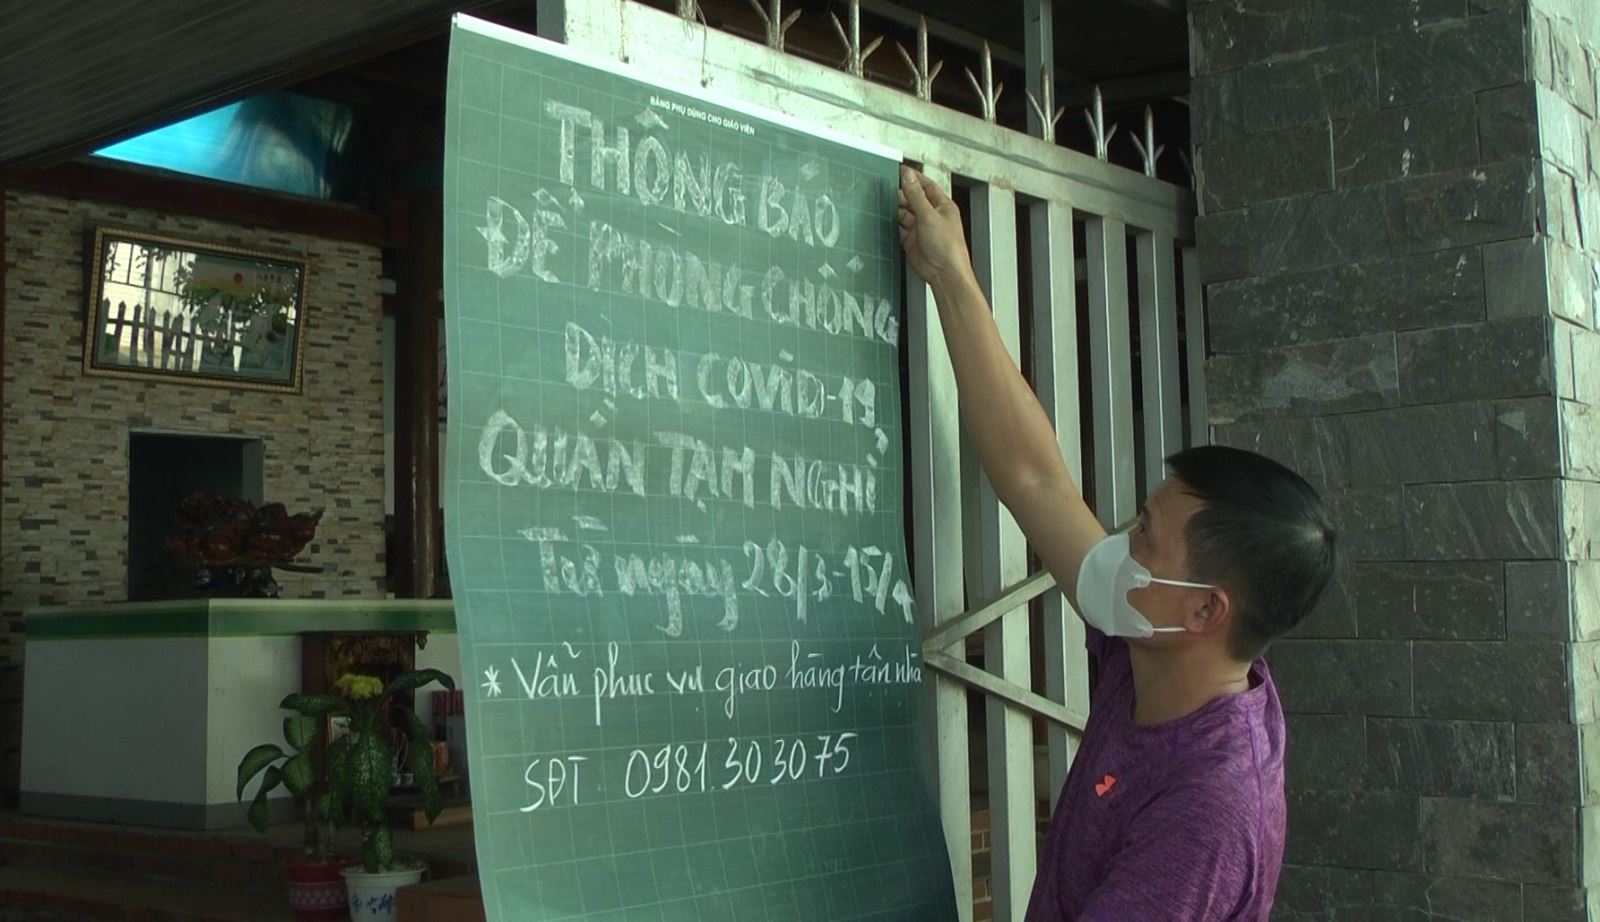 BẢNG PHỤ DÙNG CHO GIÁO VIÊN
THÔNG BÁO
ĐỂ PHÒNG CHỐNG
DỊCH COVID-19
QUÁN TẠM NGHỈ
Từ ngày 28/3-15/4
* Vẫn phục vụ giao hàng tận nhà
SĐT 0981.30 30 75